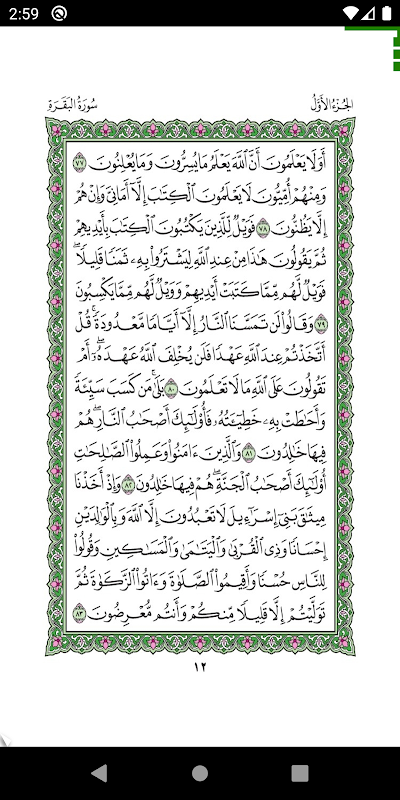 2:59
الجُزْءُ الأَوَّلُ
سُورَةُ البَقَرَةِ
أَوَلَا يَعْلَمُونَ أَنَّ ٱللَّهَ يَعْلَمُ مَا يُسِرُّونَ وَمَا يُعْلِنُونَ ٧٧
وَمِنْهُمْ أُمِّيُّونَ لَا يَعْلَمُونَ ٱلْكِتَٰبَ إِلَّآ أَمَانِىَّ وَإِنْ هُمْ
إِلَّا يَظُنُّونَ ٧٨ فَوَيْلٌ لِّلَّذِينَ يَكْتُبُونَ ٱلْكِتَٰبَ بِأَيْدِيهِمْ
ثُمَّ يَقُولُونَ هَٰذَا مِنْ عِندِ ٱللَّهِ لِيَشْتَرُوا۟ بِهِۦ ثَمَنًا قَلِيلًا ۖ
فَوَيْلٌ لَّهُم مِّمَّا كَتَبَتْ أَيْدِيهِمْ وَوَيْلٌ لَّهُم مِّمَّا يَكْسِبُونَ
٧٩ وَقَالُوا۟ لَن تَمَسَّنَا ٱلنَّارُ إِلَّآ أَيَّامًا مَّعْدُودَةً ۚ قُلْ
أَتَّخَذْتُمْ عِندَ ٱللَّهِ عَهْدًا فَلَن يُخْلِفَ ٱللَّهُ عَهْدَهُۥٓ ۖ أَمْ
تَقُولُونَ عَلَى ٱللَّهِ مَا لَا تَعْلَمُونَ ٨٠ بَلَىٰ مَن كَسَبَ سَيِّئَةً
وَأَحَٰطَتْ بِهِۦ خَطِيٓـَٔتُهُۥ فَأُو۟لَٰٓئِكَ أَصْحَٰبُ ٱلنَّارِ ۖ هُمْ
فِيهَا خَٰلِدُونَ ٨١ وَٱلَّذِينَ ءَامَنُوا۟ وَعَمِلُوا۟ ٱلصَّٰلِحَٰتِ
أُو۟لَٰٓئِكَ أَصْحَٰبُ ٱلْجَنَّةِ ۖ هُمْ فِيهَا خَٰلِدُونَ ٨٢ وَإِذْ أَخَذْنَا
مِيثَٰقَ بَنِىٓ إِسْرَٰٓءِيلَ لَا تَعْبُدُونَ إِلَّا ٱللَّهَ وَبِٱلْوَٰلِدَيْنِ
إِحْسَانًا وَذِى ٱلْقُرْبَىٰ وَٱلْيَتَٰمَىٰ وَٱلْمَسَٰكِينِ وَقُولُوا۟
لِلنَّاسِ حُسْنًا وَأَقِيمُوا۟ ٱلصَّلَوٰةَ وَءَاتُوا۟ ٱلزَّكَوٰةَ ثُمَّ
تَوَلَّيْتُمْ إِلَّا قَلِيلًا مِّنكُمْ وَأَنتُم مُّعْرِضُونَ ٨٣
١٢